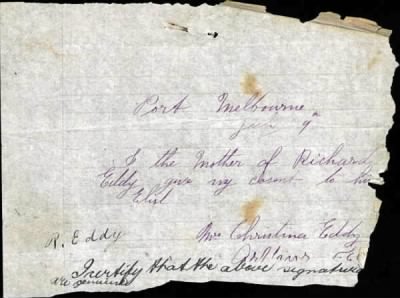 Port Melbourne
July 9th
I the Mother of Richard
Eddy give my cosent to his
Elist
Mrs Christina Eddy
R. Eddy
I certify that the above signatures
are genuine